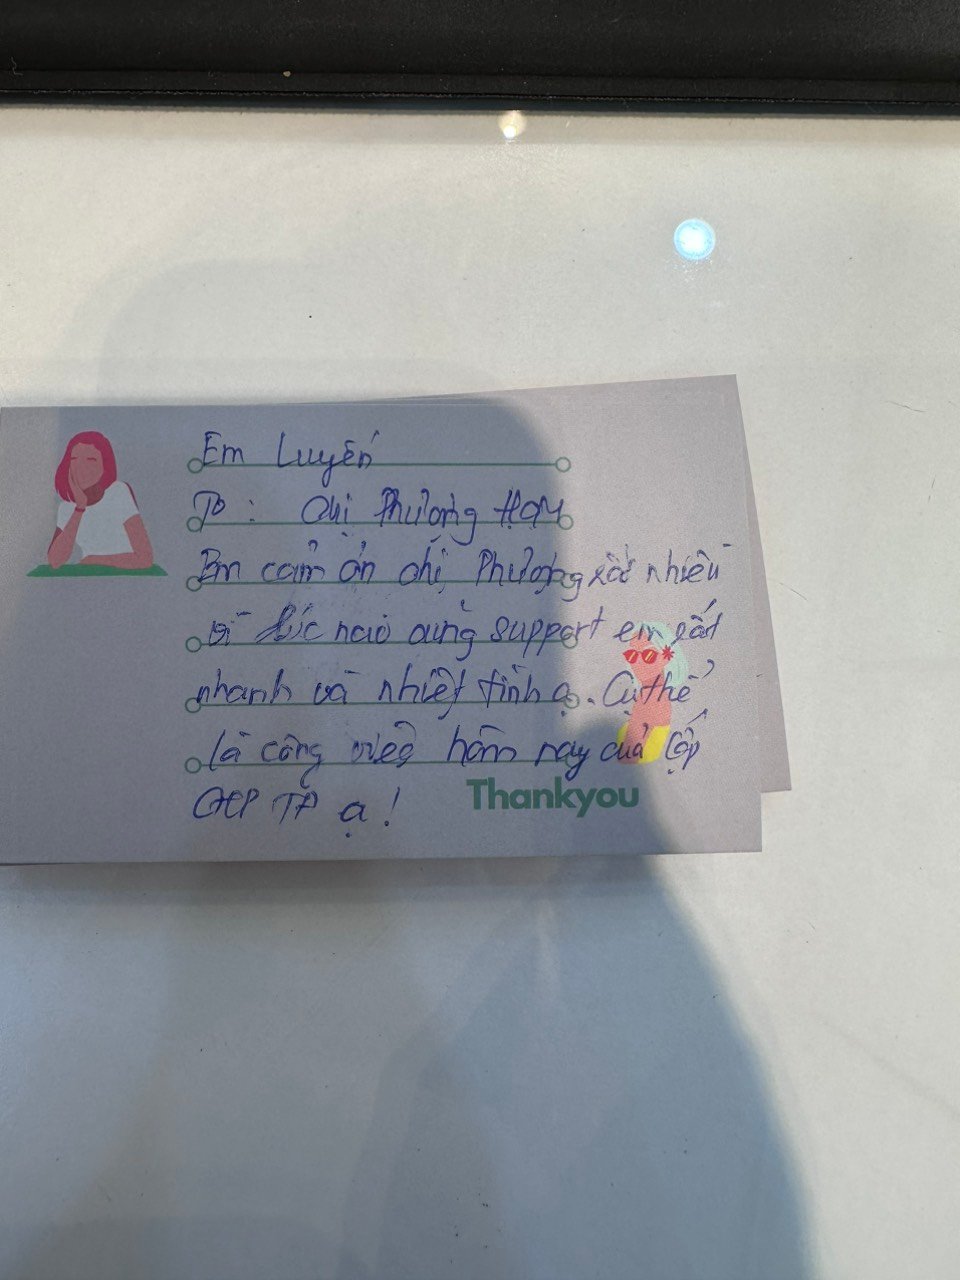 Em Luyến
To: Chị Phượng HCM
Em cảm ơn chị Phượng rất nhiều
vì lúc nào cũng support em rất
nhanh và nhiệt tình ạ. Cụ thể
là công việc hôm nay của lớp
TP ạ!
Thankyou